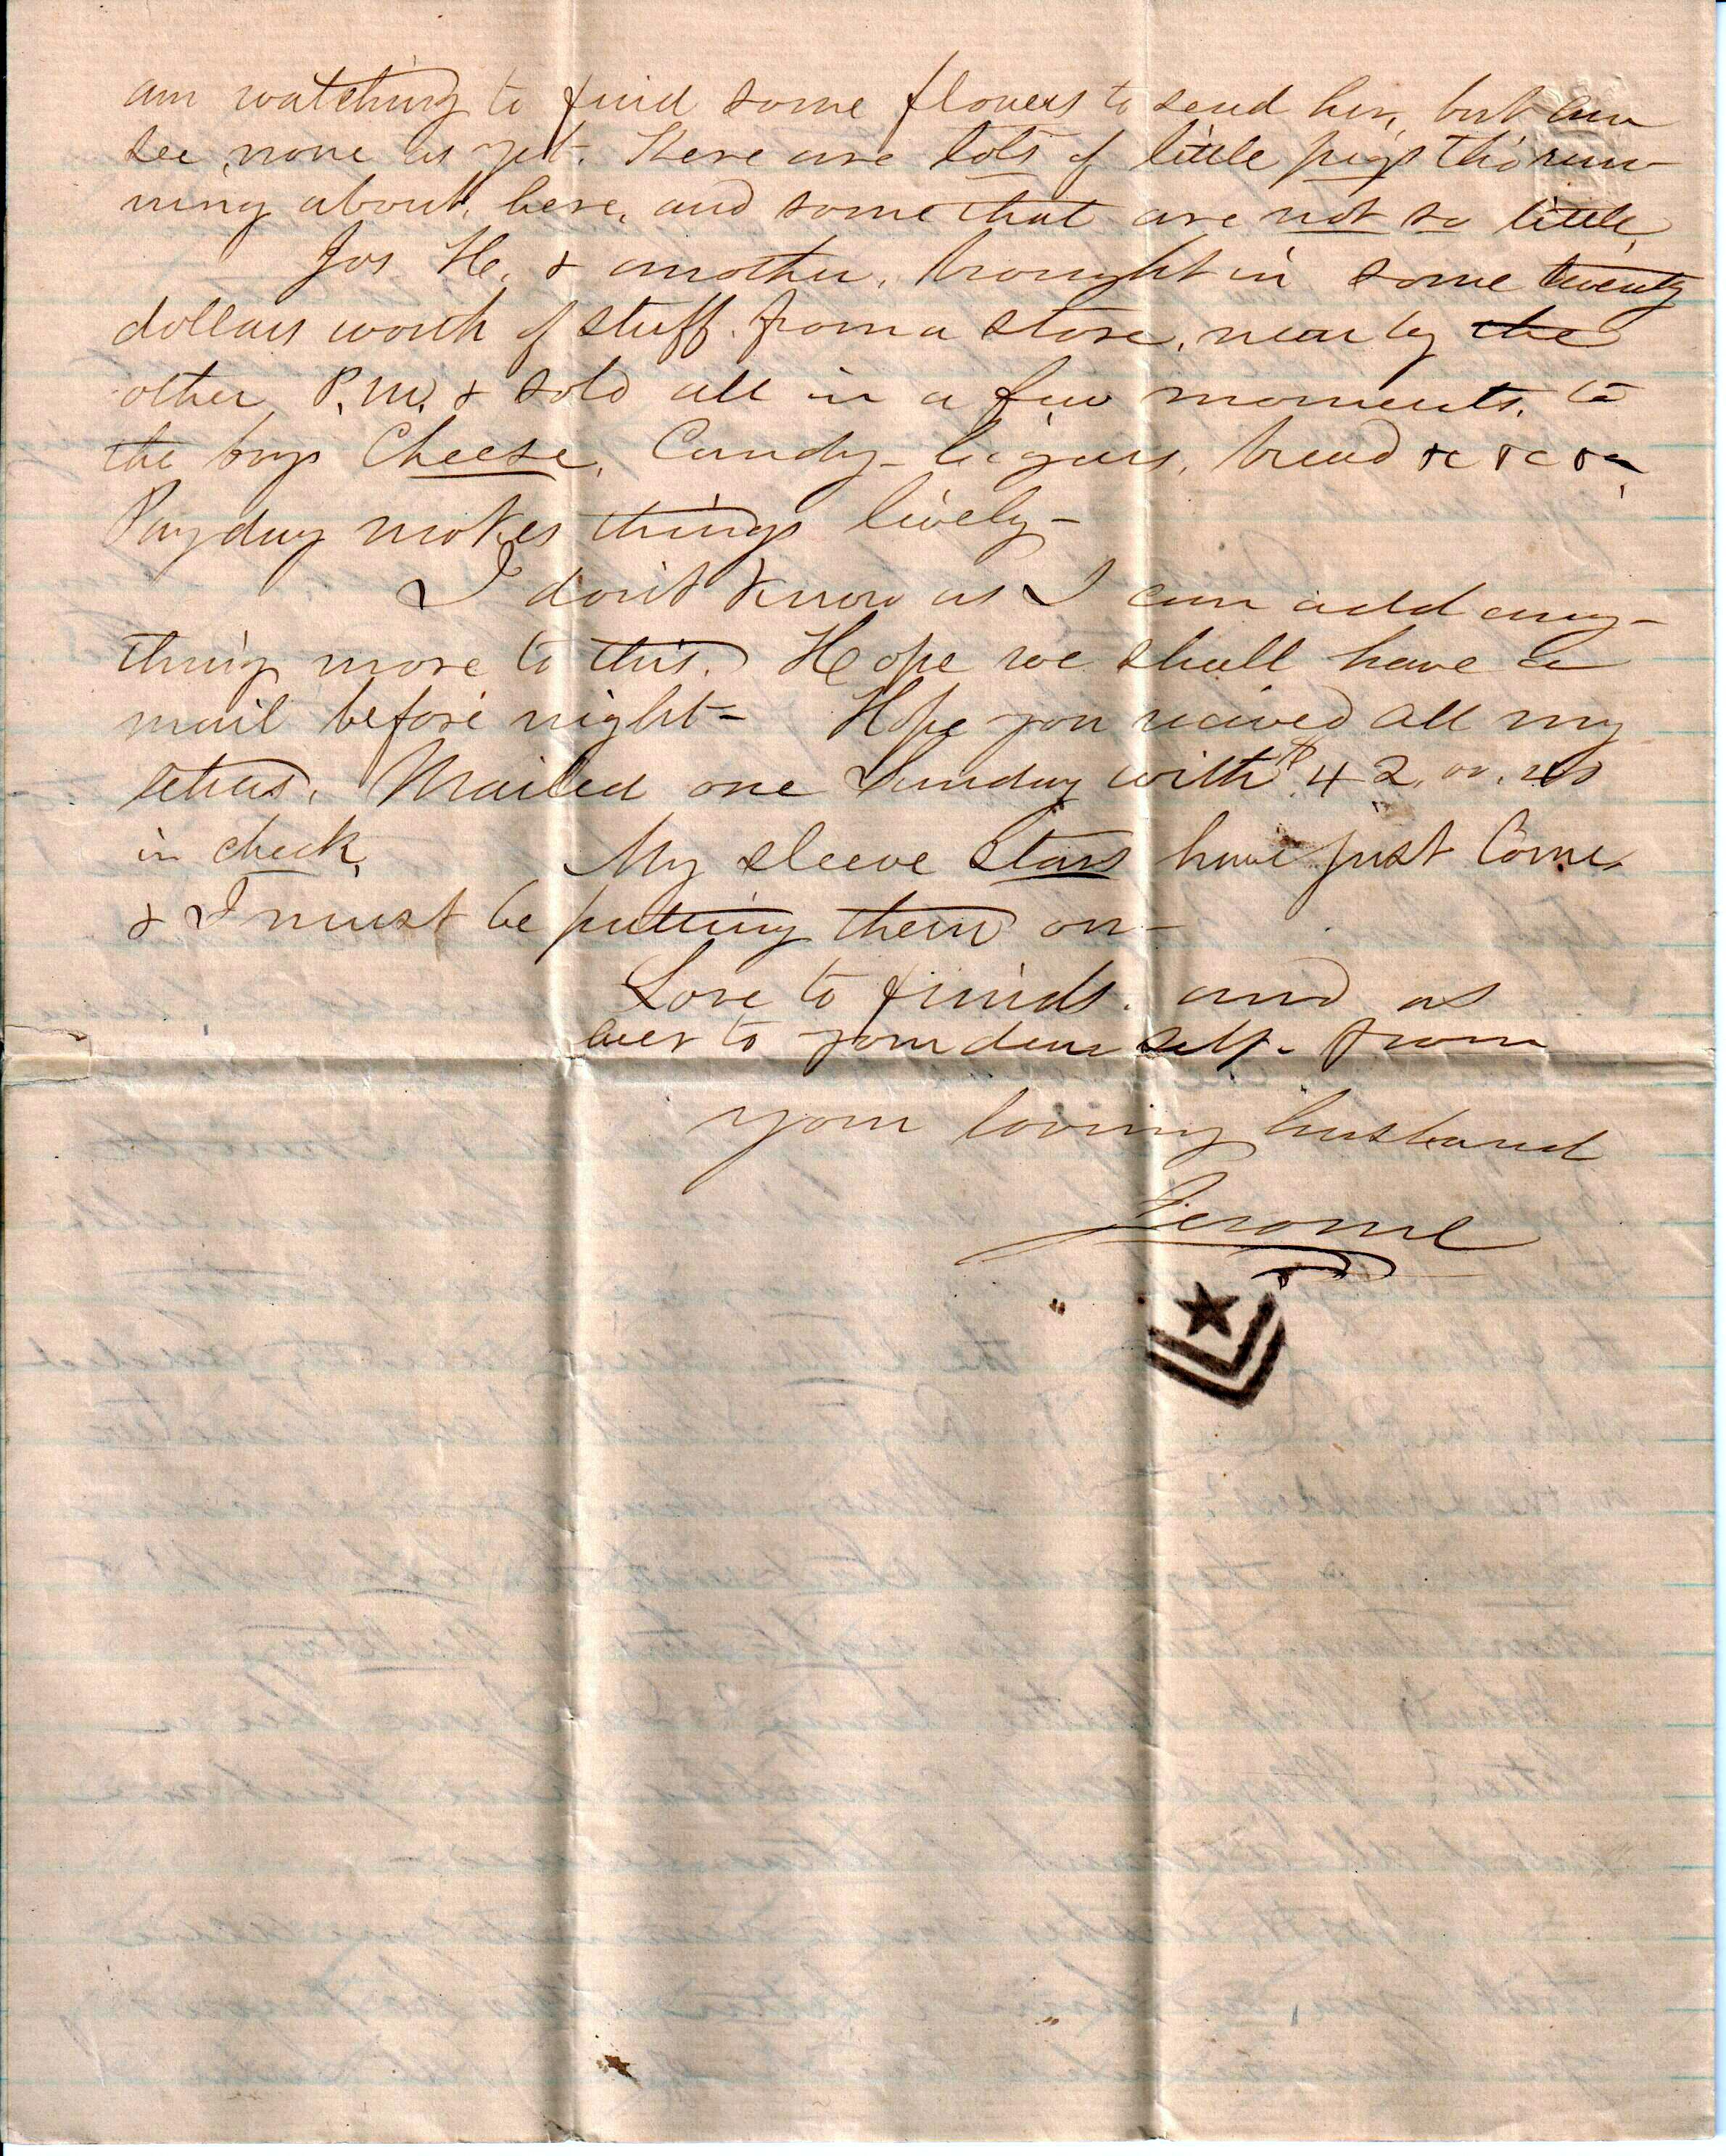 am watching to find some flowers to send her, but can
see none as yet. There are lots of little pigs tho' run-
ning about, here, and some that are not so little.
Jos H. & another, brought in some twenty
dollars worth of stuff from a store, near by the
other P.M. & sold all in a few moments, to
the boys Cheese, Candy - Cigars, bread &c &c &c
Payday makes things lively -
I don't know as I can add any-
thing more to this. Hope we shall have a
mail before night - Hope you recived all my
letters. Mailed one Sunday with $42.
in check. My sleeve Stars have just Come,
& I must be putting them on -
Love to friends. and as
ever to your dear self. from
your loving husband
Jerome